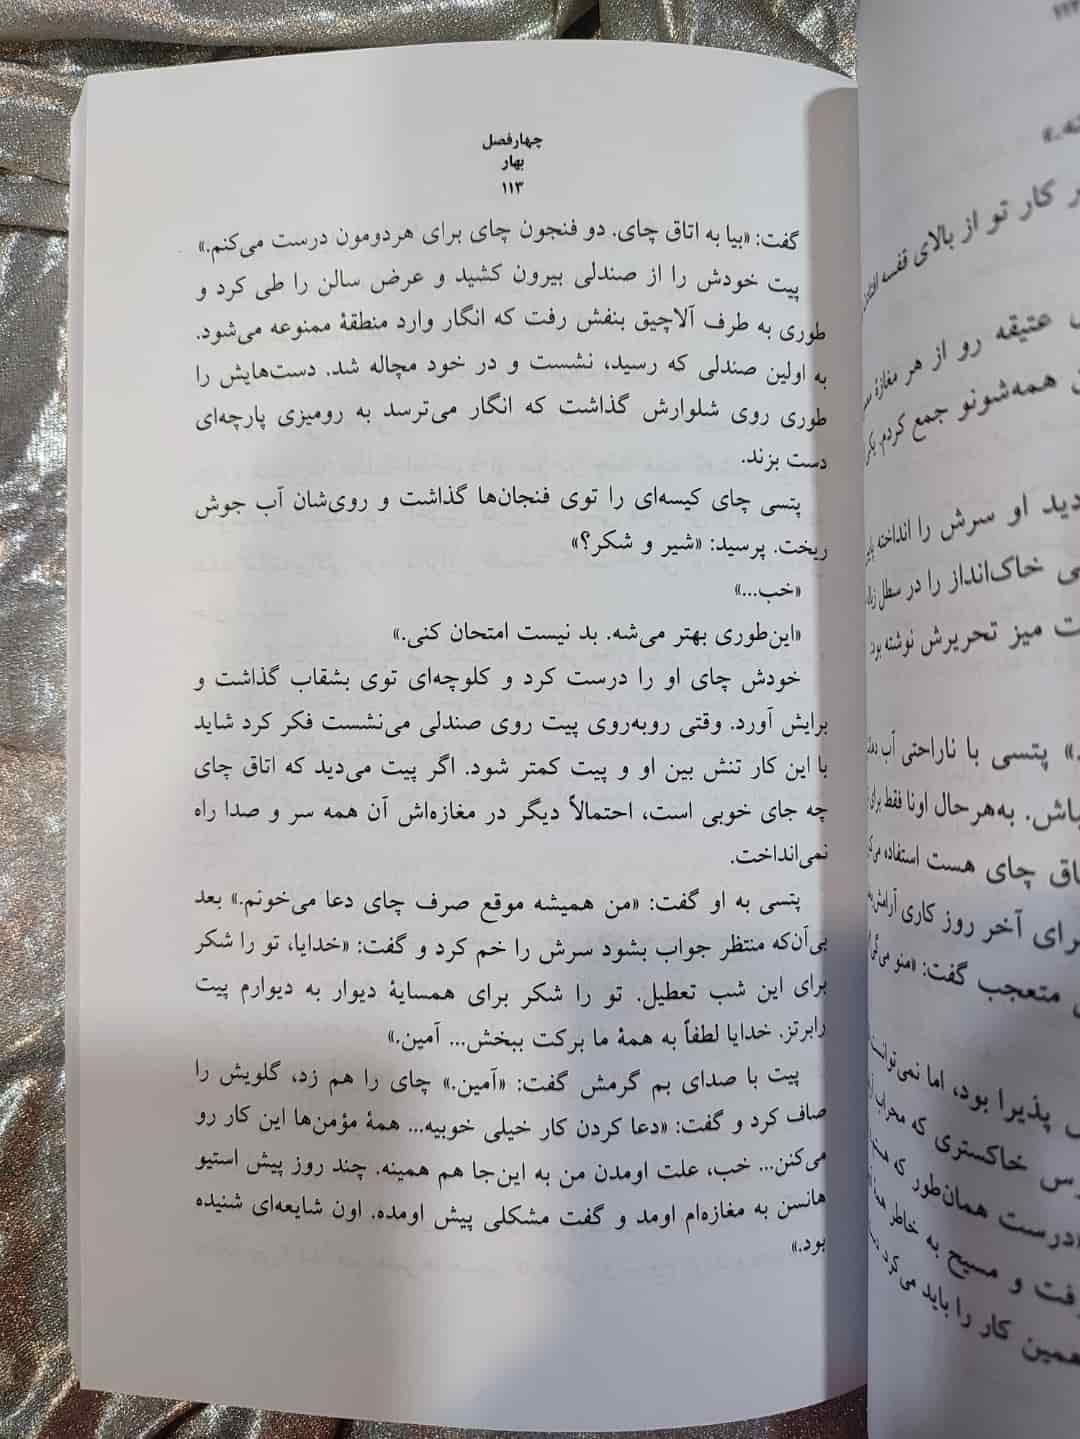 چهارفصل
بهار
۱۱۳
گفت: «بیا به اتاق چای. دو فنجون چای برای هردومون درست می‌کنم.»
پیت خودش را از صندلی بیرون کشید و عرض سالن را طی کرد و
طوری به طرف آلاچیق بنفش رفت که انگار وارد منطقهٔ ممنوعه می‌شود.
به اولین صندلی که رسید، نشست و در خود مچاله شد. دست‌هایش را
طوری روی شلوارش گذاشت که انگار می‌ترسد به رومیزی پارچه‌ای
دست بزند.
پتسی چای کیسه‌ای را توی فنجان‌ها گذاشت و روی‌شان آب جوش
ریخت. پرسید: «شیر و شکر؟»
«خب...»
«این‌طوری بهتر می‌شه. بد نیست امتحان کنی.»
خودش چای او را درست کرد و کلوچه‌ای توی بشقاب گذاشت و
برایش آورد. وقتی روبه‌روی پیت روی صندلی می‌نشست فکر کرد شاید
با این کار تنش بین او و پیت کمتر شود. اگر پیت می‌دید که اتاق چای
چه جای خوبی است، احتمالاً دیگر در مغازه‌اش آن همه سر و صدا راه
نمی‌انداخت.
پتسی به او گفت: «من همیشه موقع صرف چای دعا می‌خونم.» بعد
بی‌آن‌که منتظر جواب بشود سرش را خم کرد و گفت: «خدایا، تو را شکر
برای این شب تعطیل. تو را شکر برای همسایهٔ دیوار به دیوارم پیت
رابرتز. خدایا لطفاً به همهٔ ما برکت ببخش... آمین.»
پیت با صدای بم گرمش گفت: «آمین.» چای را هم زد، گلویش را
صاف کرد و گفت: «دعا کردن کار خیلی خوبیه... همهٔ مؤمن‌ها این کار رو
می‌کنن... خب، علت اومدن من به این‌جا هم همینه. چند روز پیش استیو
هانسن به مغازه‌ام اومد و گفت مشکلی پیش اومده. اون شایعه‌ای شنیده
بود.»
کار تو از بالای قفسه
عتیقه رو از هر مغازهٔ
همه‌شونو جمع کردم.
دید او سرش را انداخته
خاک‌انداز را در سطل
میز تحریرش نوشته بود:
پتسی با ناراحتی آب
به‌هرحال اونا فقط برای
چای هست استفاده
آخر روز کاری
متعجب گفت: «منو
پذیرا بود، اما
خاکستری که محراب
«درست همان‌طور که
و مسیح به خاطر همهٔ
همین کار را باید می‌کرد.